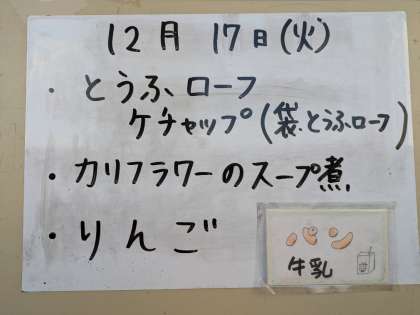 12月 17日(火)
・とうふローフ
ケチャップ(袋.とうふローフ)
・カリフラワーのスープ煮
・りんご
パン
牛乳